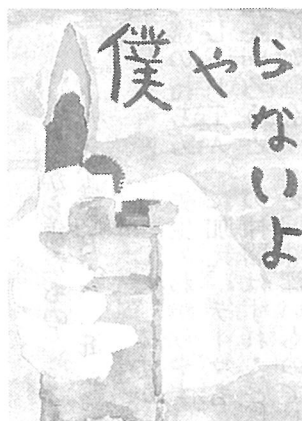 僕やらないよ